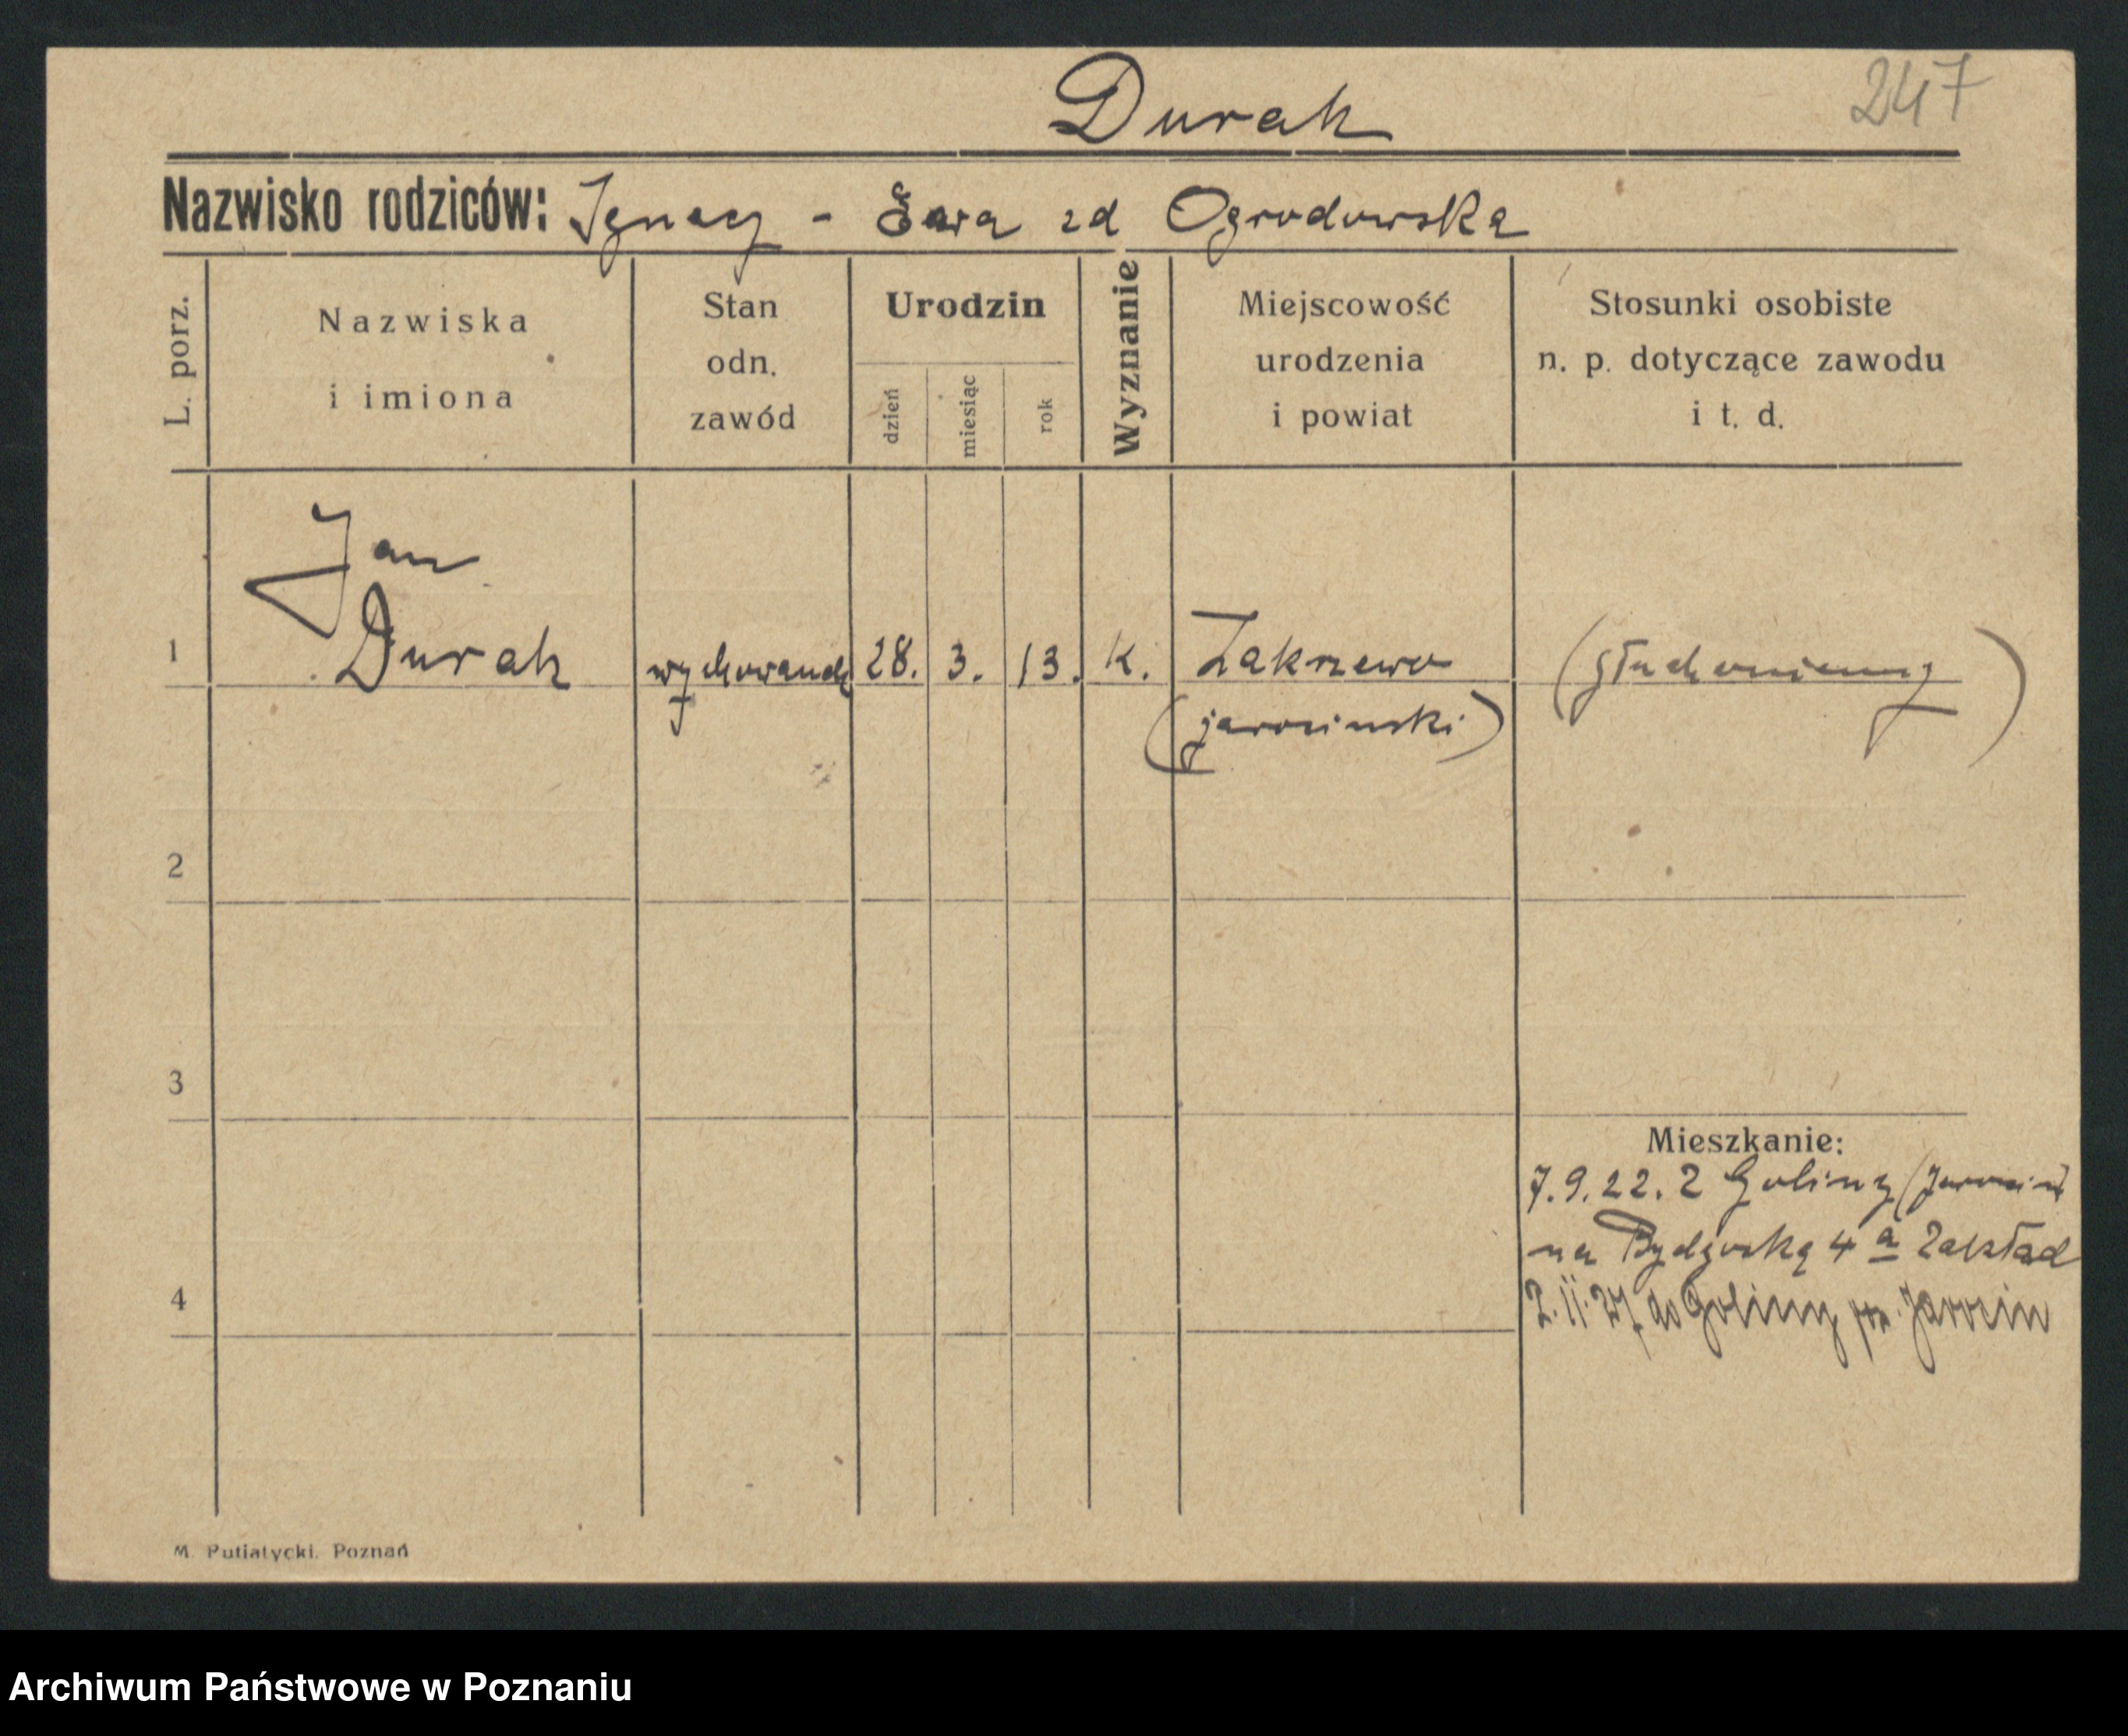 Durak
247
Nazwisko rodziców: Ignacy - Ewa zd Ogrodowska
L. porz.
Nazwiska
i imiona
Stan
odn.
zawód
Urodzin
dzień
miesiąc
rok
Wyznanie
Miejscowość
urodzenia
i powiat
Stosunki osobiste
n. p. dotyczące zawodu
i t. d.
Jan
1 Durak wychowanek 28. 3. 13. K. Zakrzewo (głuchoniemy)
(jarociński)
2
3
Mieszkanie:
7.9.22. z Goliny (Jarocin
na Bydgoską 4 a Zakład
4
2.11.27 do Goliny pow. Jarocin
M. Putiatycki. Poznań
Archiwum Państwowe w Poznaniu